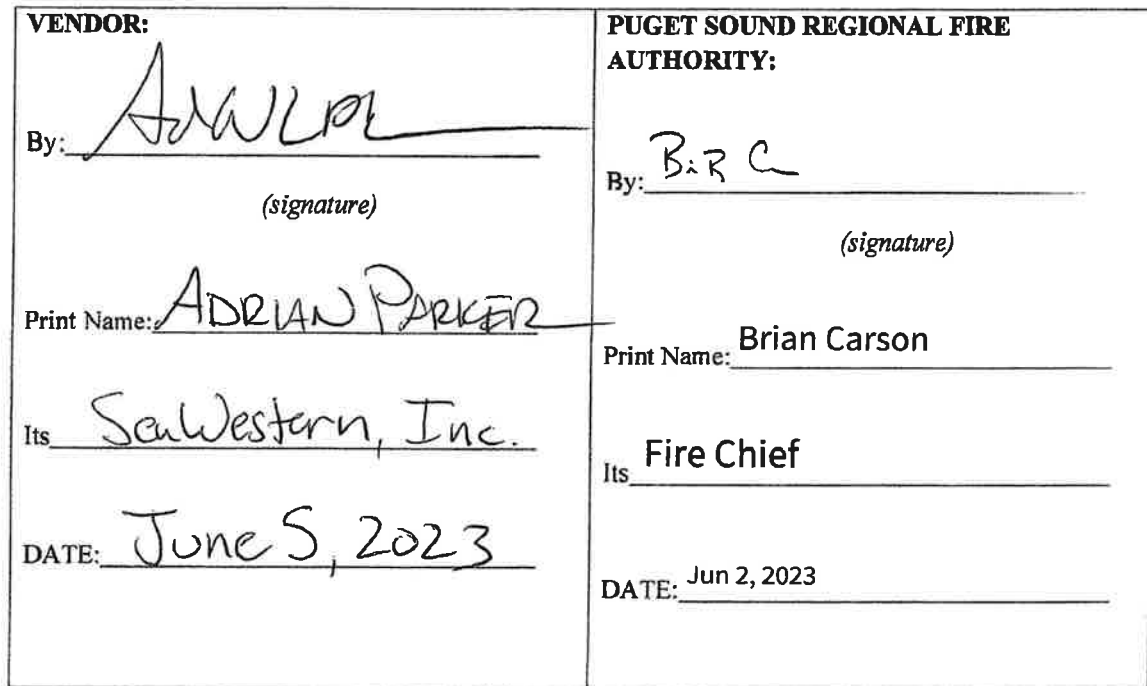 VENDOR:
By:
(signature)
Print Name: ADRIAN PARKER
Its SeaWestern, Inc.
DATE: June 5, 2023
PUGET SOUND REGIONAL FIRE
AUTHORITY:
By:
(signature)
Print Name: Brian Carson
Its Fire Chief
DATE: Jun 2, 2023